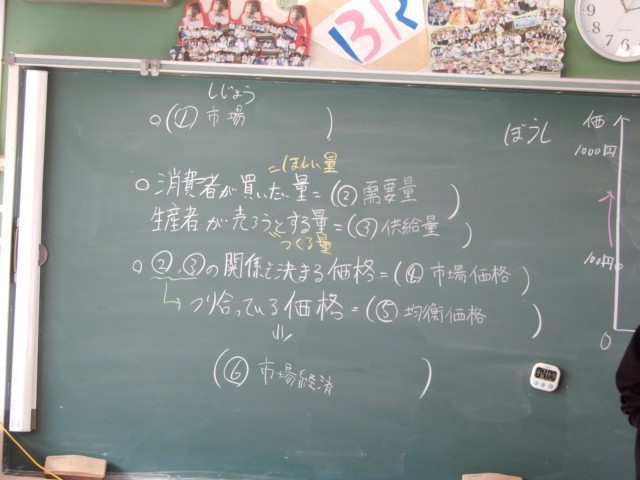 1312
しじょう
○(① 市場 )
=ほしい量
○消費者が買いたい量=(② 需要量 )
生産者が売ろうとする量=(③ 供給量 )
=つくる量
○②、③の関係で決まる価格=(④ 市場価格 )
→つり合っている価格=(⑤ 均衡価格 )
(⑥ 市場経済 )
ぼうし
価
1000円
100円
0